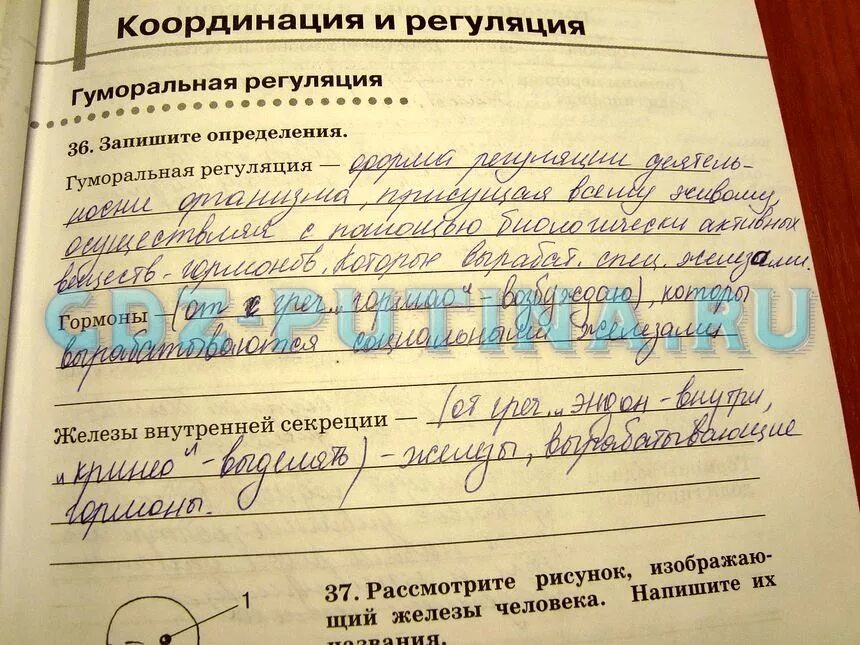 Координация и регуляция
Гуморальная регуляция
36. Запишите определения.
Гуморальная регуляция — форма регуляции деятель-
ности организма, присущая всему живому,
осуществляя с помощью биологически активных
веществ - гормонов, которые вырабат. спец. железами.
Гормоны — (от греч. „гормао" - возбуждаю), которы
вырабатываются социальными железами
Железы внутренней секреции — (от греч. „эндон - внутри,
„кринео" - выделять) - железы, вырабатывающие
гормоны.
GDZ-PUTINA.RU
1
37. Рассмотрите рисунок, изображаю-
щий железы человека. Напишите их
названия.